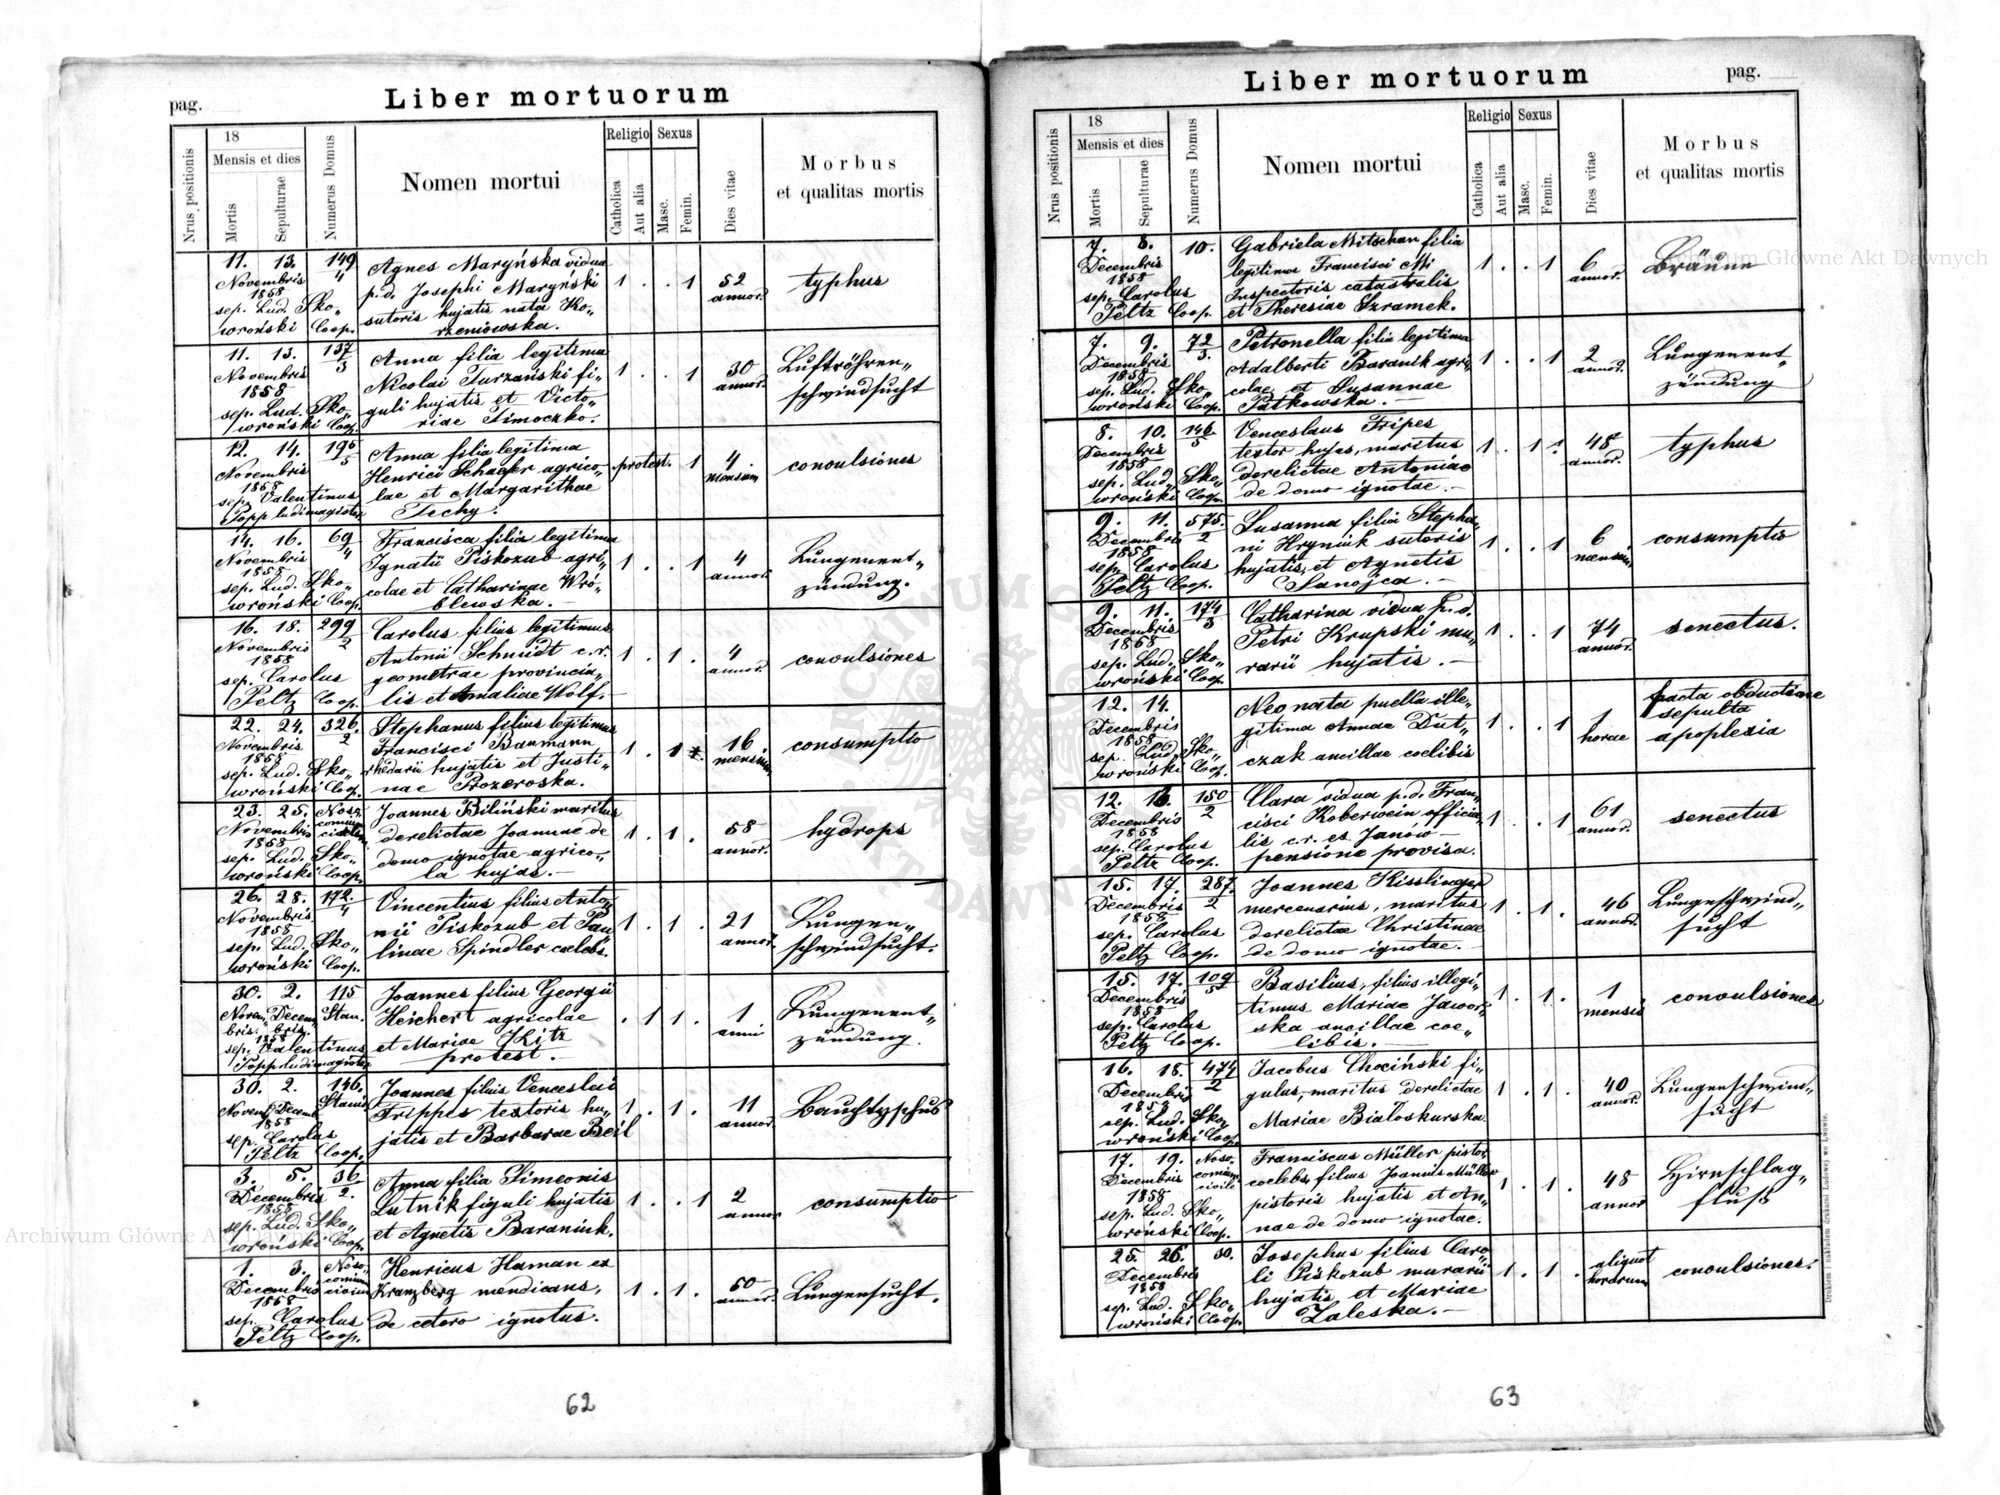 pag.
Liber mortuorum
Nrus positionis
18
Mensis et dies
Mortis
Sepulturae
Numerus Domus
Nomen mortui
Religio
Catholica
Aut alia
Sexus
Masc.
Femin.
Dies vitae
Morbus
et qualitas mortis
11. 13. 149/4
Novembris
1858
sep. Lud. Sko„
wroński Coop.
Agnes Maryńska vidua
p. d. Josephi Maryński
sutoris hujatis nata Ko„
rzeniowska.
1 . . 1
52
annor.
typhus
11. 13. 137/3
Novembris
1858
sep. Lud. Sko„
wroński Coop.
Anna filia legitima
Nicolai Turzański fi„
guli hujatis et Victo„
riae Simoczko.
1 . . 1
30
annor.
Luftröhren„
schwindsucht
12. 14. 195/5
Novembris
1858
sep. Valentinus
Popp ludimagister
Anna filia legitima
Henrici Schager agrico„
lae et Margarithae
Techy.
protest. 1
4
mensium
convulsiones
14. 16. 69/4
Novembris
1858
sep. Lud. Sko„
wroński Coop.
Francisca filia legitima
Ignatii Piskozub agri„
colae et Catharinae Wró„
blewska.
1 . . 1
4
annor.
Lungenent„
zündung.
16. 18. 299/2
Novembris
1858
sep. Carolus
Peltz Coop.
Carolus filius legitimus
Antonii Schmidt c. r.
geometrae provincia„
lis et Amaliae Wolf.
1 . 1 .
4
annor.
convulsiones
22. 24. 326./2
Novembris
1858
sep. Lud. Sko„
wroński Coop.
Stephanus filius legitimus
Francisci Baumann
rhedarii hujatis et Justi„
nae Prozeroska.
1 . 1
16
mensium
consumptio
23. 25. Noso„
comium
Novembris
1858
sep. Lud. Sko„
wroński Coop.
Joannes Biliński maritus
derelictae Joannae de
domo ignotae agrico„
la hujas.
1 . 1 .
58
annor.
hydrops
26. 28. 172./4
Novembris
1858
sep. Lud. Sko„
wroński Coop.
Vincentius filius Anto„
nii Piskozub et Pau„
linae Spindler caelebs.
1 . 1 .
21
annor.
Lungen„
schwindsucht.
30. 2. 115
Novem„ Decem„ Stan.
bris. bris.
1858
sep. Valentinus
Popp ludimagister
Joannes filius Georgii
Heichert agricolae
et Mariae Kitz
protest.
. 1 1 .
1
anni
Lungenent„
zündung.
30. 2. 146.
Novemb. Decemb. Stanis
1858
sep. Carolus
Peltz Coop.
Joannes filius Venceslai
Trippes textoris hu„
jatis et Barbarae Beil
1 . 1 .
11
annor.
Bauchtyphus
3. 5. 36/2.
Decembris
1858
sep. Lud. Sko„
wroński Coop.
Anna filia Simeonis
Lutnik figuli hujatis
et Agnetis Baraniuk.
1 . . 1
2
annor.
consumptio
1. 3. Noso„
comium
Decembris
1858
sep. Carolus
Peltz Coop.
Henricus Haman ex
Kranzberg mendicans,
de cetero ignotus.
1 . 1 .
50
annor.
Lungensucht.
62
Liber mortuorum
pag.
Nrus positionis
18
Mensis et dies
Mortis
Sepulturae
Numerus Domus
Nomen mortui
Religio
Catholica
Aut alia
Sexus
Masc.
Femin.
Dies vitae
Morbus
et qualitas mortis
7. 8. 10.
Decembris
1858
sep. Carolus
Peltz Coop.
Gabriela Mitschan filia
legitima Francisci Mi
Inspectoris catastralis
et Theresiae Szramek.
1 . . 1
6
annor.
Bräune
7. 9. 72/3.
Decembris
1858
sep. Lud. Sko„
wroński Coop.
Petronella filia legitima
Adalberti Baranik agri„
colae et Susannae
Patkowska.
1 . . 1
2
annor.
Lungenent„
zündung
8. 10. 146/5
Decembris
1858
sep. Lud. Sko„
wroński Coop.
Venceslaus Tripes
textor hujas, maritus
derelictae Antoniae
de domo ignotae.
1 . 1
48
annor.
typhus
9. 11. 575./2
Decembris
1858
sep. Carolus
Peltz Coop.
Susanna filia Stepha„
ni Hryniuk sutoris
hujatis, et Agnetis
Sanojca.
1 . . 1
6
mensium
consumptio
9. 11. 174/3
Decembris
1858
sep. Lud. Sko„
wroński Coop.
Catharina vidua p. d.
Petri Krupski mu„
rarii hujatis.
1 . . 1
74
annor.
senectus.
12. 14.
Decembris
1858
sep. Lud. Sko„
wroński Coop.
Neonata puella ille„
gitima Annae Dut„
czak ancillae coelibis
1 . . 1
1
horae
facta obductione
sepulta
apoplexia
12. 16. 150/2
Decembris
1858
sep. Carolus
Peltz Coop.
Clara vidua p. d. Fran„
cisci Koberwein officia„
lis c. r. ex Janów
pensione provisa.
1 . . 1
61
annor.
senectus
15. 17. 287./2
Decembris
1858
sep. Carolus
Peltz Coop.
Joannes Kisslinger
mercenarius, maritus
derelictae Christinae
de domo ignotae.
1 . 1 .
46
annor.
Lungenschwind„
sucht
15. 17. 109/5
Decembris
1858
sep. Carolus
Peltz Coop.
Basilius, filius illegi„
timus Mariae Jawor„
ska ancillae coe„
libis.
1 . 1 .
1
mensis
convulsiones
16. 18. 474/2
Decembris
1858
sep. Lud. Sko„
wroński Coop.
Jacobus Chociński fi„
gulus, maritus derelictae
Mariae Białoskurska
1 . 1 .
40
annor.
Lungenschwind„
sucht
17. 19. Noso„
comium
civile
Decembris
1858
sep. Lud. Sko„
wroński Coop.
Franciscus Müller pistor
coelebs, filius Joannis Müller
pistoris hujatis et An„
nae de domo ignotae.
1 . 1 .
48
annor
Hirnschlag„
fluß
25. 26. 30.
Decembris
1858
sep. Lud. Sko„
wroński Coop.
Josephus filius Caro„
li Piskozub murarii
hujatis et Mariae
Zaleska.
1 . 1 .
aliquot
horarum
convulsiones.
Drukiem i nakładem drukarni Ludowej we Lwowie.
63
Archiwum Główne Akt Dawnych
Archiwum Główne Akt Dawnych